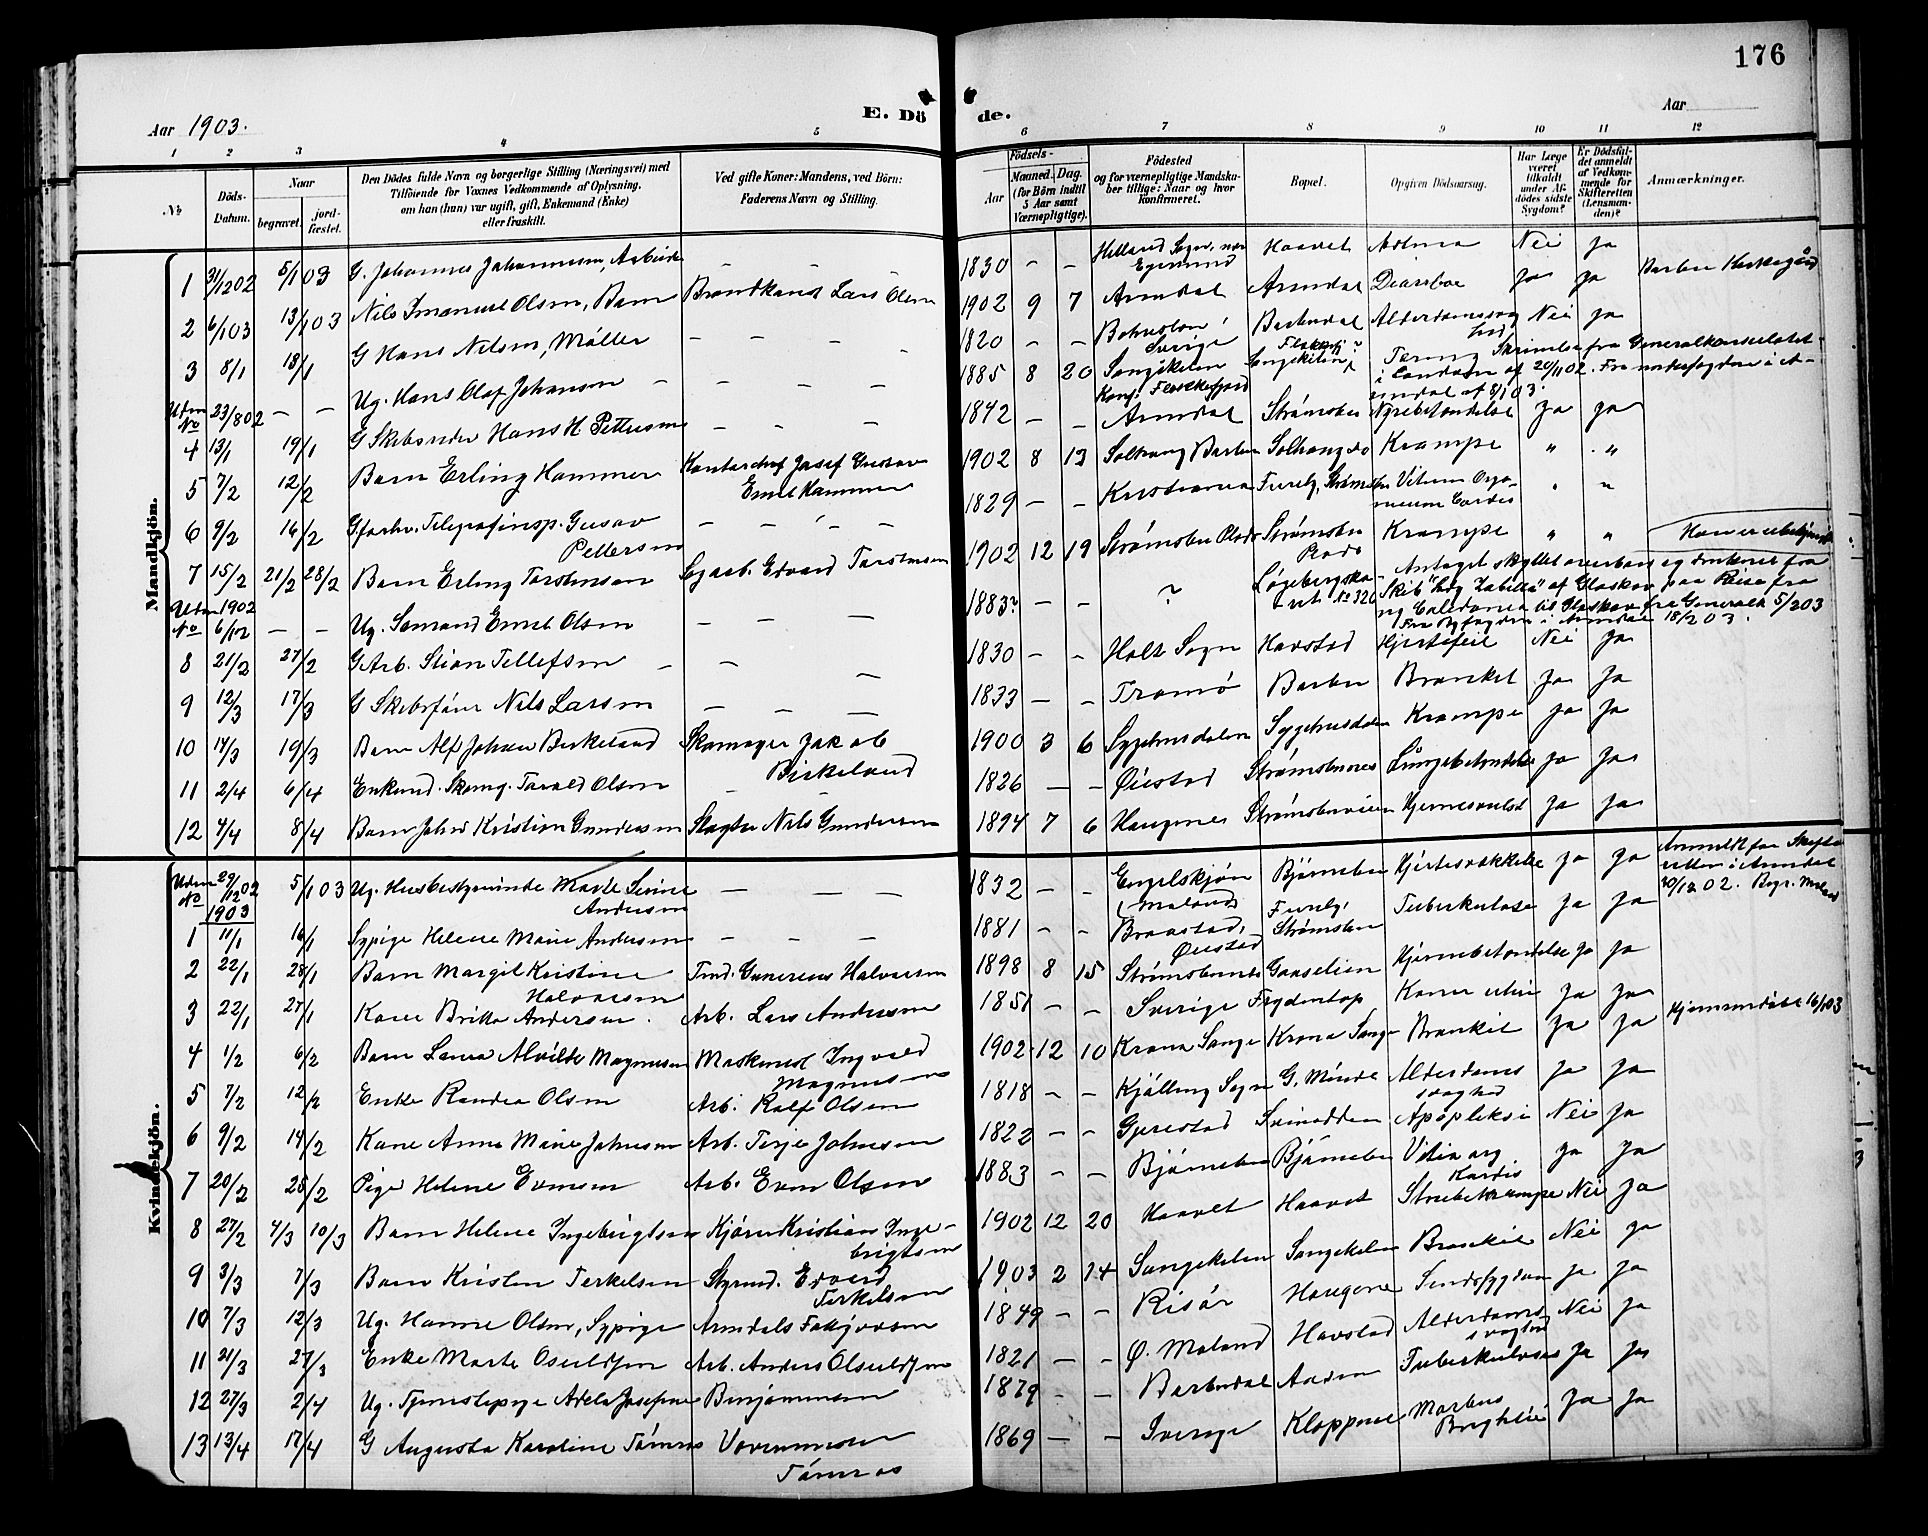 176
Aar 1903.
E. Dö de.
Aar
1 2 3 4 5 6 7 8 9 10 11 12
№
Döds-Datum.
Naar
begravet.
jord-fæstet.
Den Dödes fulde Navn og borgerlige Stilling (Næringsvei) med
Tilföiende for Voxnes Vedkommende af Oplysning,
om han (hun) var ugift, gift, Enkemand (Enke)
eller fraskilt.
Ved gifte Koner: Mandens, ved Börn:
Faderens Navn og Stilling.
Födsels-
Aar
Maaned. Dag.
(for Börn indtil
5 Aar samt
Værnepligtige).
Födested
og for værnepligtige Mandska-
ber tillige: Naar og hvor
konfirmeret.
Bopæl.
Opgiven Dödsaarsag.
Har Læge
været
tilkaldt
under Af-
dödes sidste
Sygdom?
Er Dödsfal-
det anmeldt
af Vedkom-
mende for
Skifteretten
(Lensman-
den)?
Anmærkninger.
Mandkjön.
1 31/1202 5/103 G. Johannes Johannesen, Arbeider – – 1830 – – Helland Sogn, nær Egersund Haavet Astma Nei Ja
2 6/103 13/103 Nils Imanuel Olsen, Barn Brandkand Lars Olsen 1902 9 7 Arendal Arendal Diarrhoe Ja Ja Barbu Kirkegård
3 8/1 13/1 G Hans Nilsen, Møller – – – 1820 – – Bohuslen, Sverige Barbudal Alderdomssvaghed Nei Ja
Uden No 23/802 – – Ug. Hans Olaf Johansen – – – 1885 8 20 Songekilen Konf. Flekkefjord Songekilen Skrivelse fra Generalkonsulatet i London af 20/1102.
4 13/1 19/1 G Skibsreder Hans H. Pettersen – – – 1842 – – Arendal Strømsbu Nyrebetændelse Ja Ja
5 7/2 12/2 Barn Erling Hammer Kontorchef Josef Gustav Ernst Hammer 1902 8 13 Solhaug Barbu Solhaug do Krampe " "
6 9/2 16/2 G forhv. Telegrafinsp. Gustav Pettersen – – – 1829 – – Kristiania Fureby, Strømsbu Vitium Organicum Cordis " "
7 15/2 21/2 28/2 Barn Erling Torstensen Sagarb. Edvard Torstensen 1902 12 19 Strømsbu Plads Strømsbu Plads Krampe " "
Uden No 1902 6/12 – – Ug. Ernst Olsen – – – 1883? – – ? No 320 Antaget skyllet overbord og druknet fra Skib af Glaskov paa Reise fra Caledonia til Glaskov fra Generalk 5/203 i Arendal 18/203.
8 21/2 27/2 G Arb. Stian Tellefsen – – – 1830 – – Holt Sogn Havstad Hjertefeil Nei Ja
9 12/3 17/3 G Nils Larsen – – – 1833 – – Tromø Barbu Bronkit Ja Ja
10 14/3 19/3 Barn Alf Johan Birkeland Skomager Jakob Birkeland 1900 3 6 Sygehusdalen Sygehusdalen Krampe Ja Ja
11 2/4 6/4 Enkemd. Skomg. Tarald Olsen – – 1826 – – Øiestad Strømsbunes Lungebetændelse Ja Ja
12 4/4 8/4 Barn Kristian Gundersen Slagter Nils Gundersen 1894 7 6 Haugenes Strømsbuveien Hjernesvulst Ja Ja
Kvindekjön.
Uden No 29/1202 5/103 Ug. Husbestyrerinde Marte Serine Andersen – – – 1832 – – Engelskjøn Moland Bjørnebu Hjertesvækkelse Ja Ja Anmeldt for Skifteretten i Arendal 30/1202.
1903
1 11/1 16/1 Sypige Helene Marie Andersen – – – 1881 – – Braastad, Øiestad Fureby, Strømsbu Tuberkulose Ja Ja
2 22/1 28/1 Barn Margit Kristine Halvorsen Tmd. Halvorsen 1898 8 15 Strømsbunes Gaaselien Hjernebetændelse Ja Ja
3 22/1 27/1 Kone Britta Andersen. Arb. Lars Andersen 1851 – – Sverige Frydentop Ja Ja
4 1/2 6/2 Barn Laura Alvilde Magnusen Maskinist Ingvald Magnusen 1902 12 10 Krona Songe Krona Songe Bronkit Ja Ja Hjemmedøbt 16/103
5 7/2 12/2 Enke Randea Olsen Arb. Ralf Olsen 1818 – – Sogn G. Minde Alderdomssvaghed Ja Ja
6 9/2 14/2 Kone Anna Marie Johnsen Arb. Terje Johnsen 1822 – – Gjerestad Svinodden Apopleksi Nei Ja
7 20/2 25/2 Pige Helene Evensen Arb. Even Olsen 1883 – – Bjørnebu Bjørnebu Vitia org Kordis Ja Ja
8 27/2 4/3 10/3 Barn Helene Ingebrigtsen Kjører Kristian Ingebrigtsen 1902 12 20 Haavet Haavet Strubekrampe Nei Ja
9 3/3 7/3 Barn Kristen Terkelsen Styrmd. Edvard Terkelsen 1903 2 14 Songekilen Songekilen Bronkit Nei Ja
10 7/3 12/3 Ug. Hanne Olsen, Sypige Arendals Fattigvæsen 1849 – – Risør Haugene Sindssygdom Ja Ja
11 21/3 27/3 Enke Marte Osuldsen Arb. Anders Osuldsen 1821 – – Ø. Moland Havstad Alderdomssvaghed Nei Ja
12 27/3 2/4 Ug. Tjenestepige Adele Josefine Benjaminsen 1879 – – Barbudal Aasen Tuberkulose Ja Ja
13 13/4 17/4 G Augusta Karoline Tørnros Tørnros 1869 – – Sverige Kloppene Morbus Brightii Ja Ja